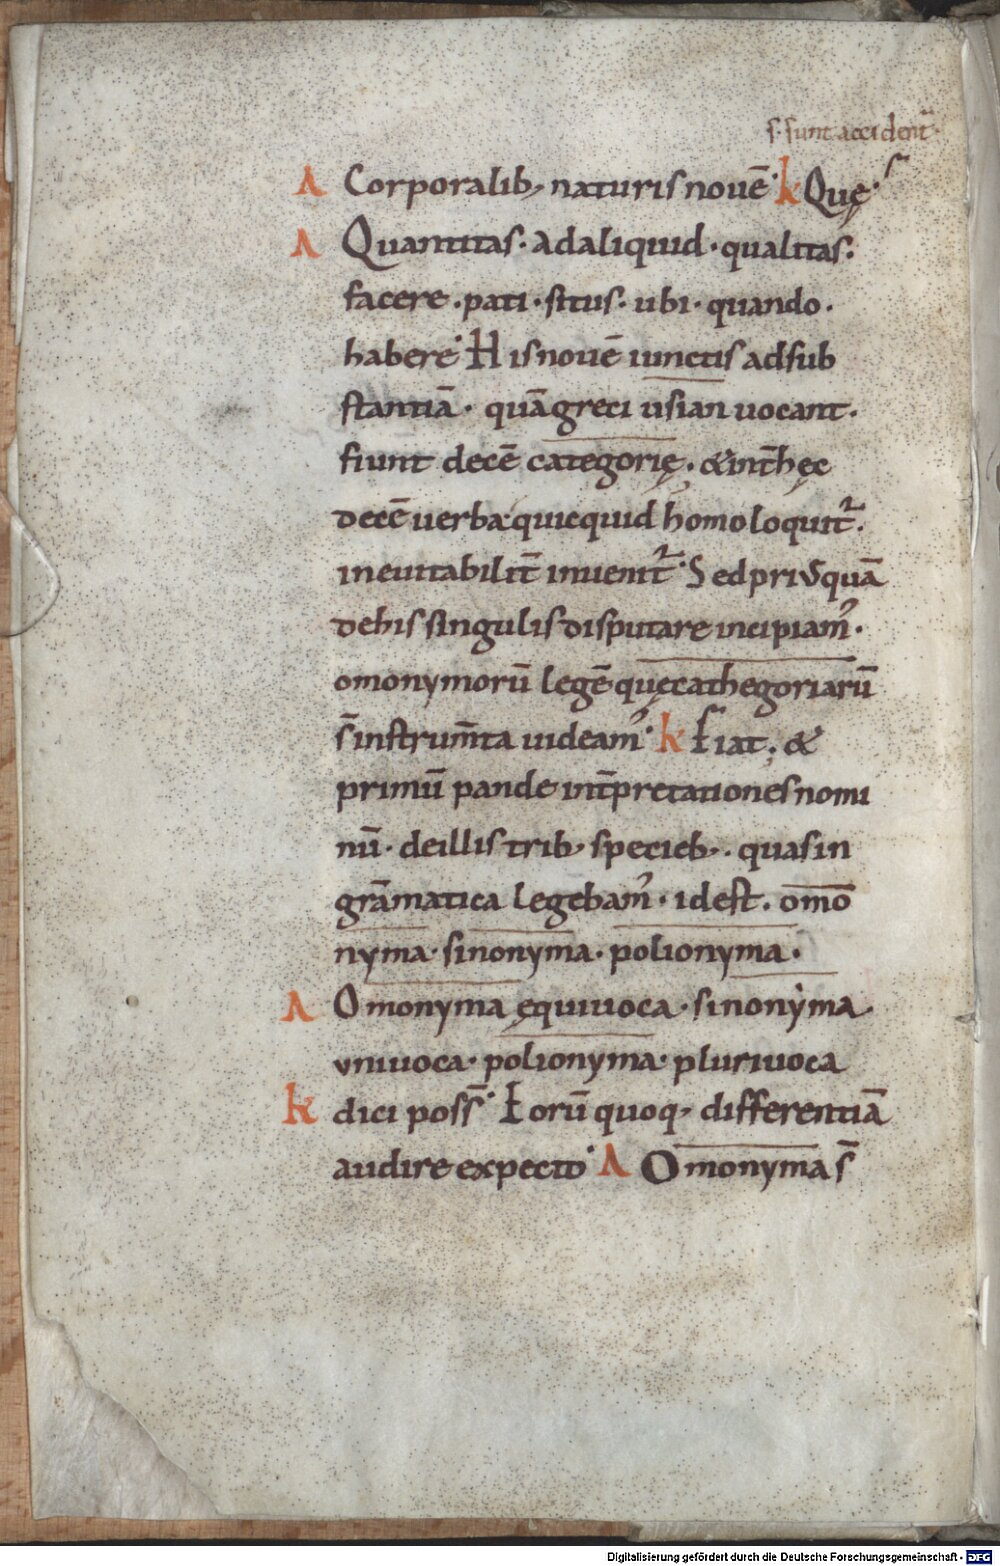 s· sunt accident̄·
A Corporalib; naturis nouē· k Quę·
A Quantitas· ad aliquid· qualitas·
facere· pati· situs· ubi· quando·
habere· His nouē iunctis ad sub
stantiā· quā greci usian uocant·
fiunt decē categorię· & int̄ hęc
decē uerba quicquid homo loquit̄·
ineuitabilit̄ inuenit̄· Sed priusquā
de his singulis disputare incipiam᾿·
omonymorū legē quę cathegoriarū
s̄ instrum̄ta uideam᾿· k Fiat· &
primū pande int̄pretationes nomi
nū· de illis trib; specieb;· quas in
grāmatica legebam᾿· id est· omo
nyma· sinonyma· polionyma·
A Omonyma ęquiuoca· sinonyma
uniuoca· polionyma· pluriuoca
k dici poss̄· Eorū quoq; differentiā
audire expecto· A Omonyma s̄
Digitalisierung gefördert durch die Deutsche Forschungsgemeinschaft - DFG